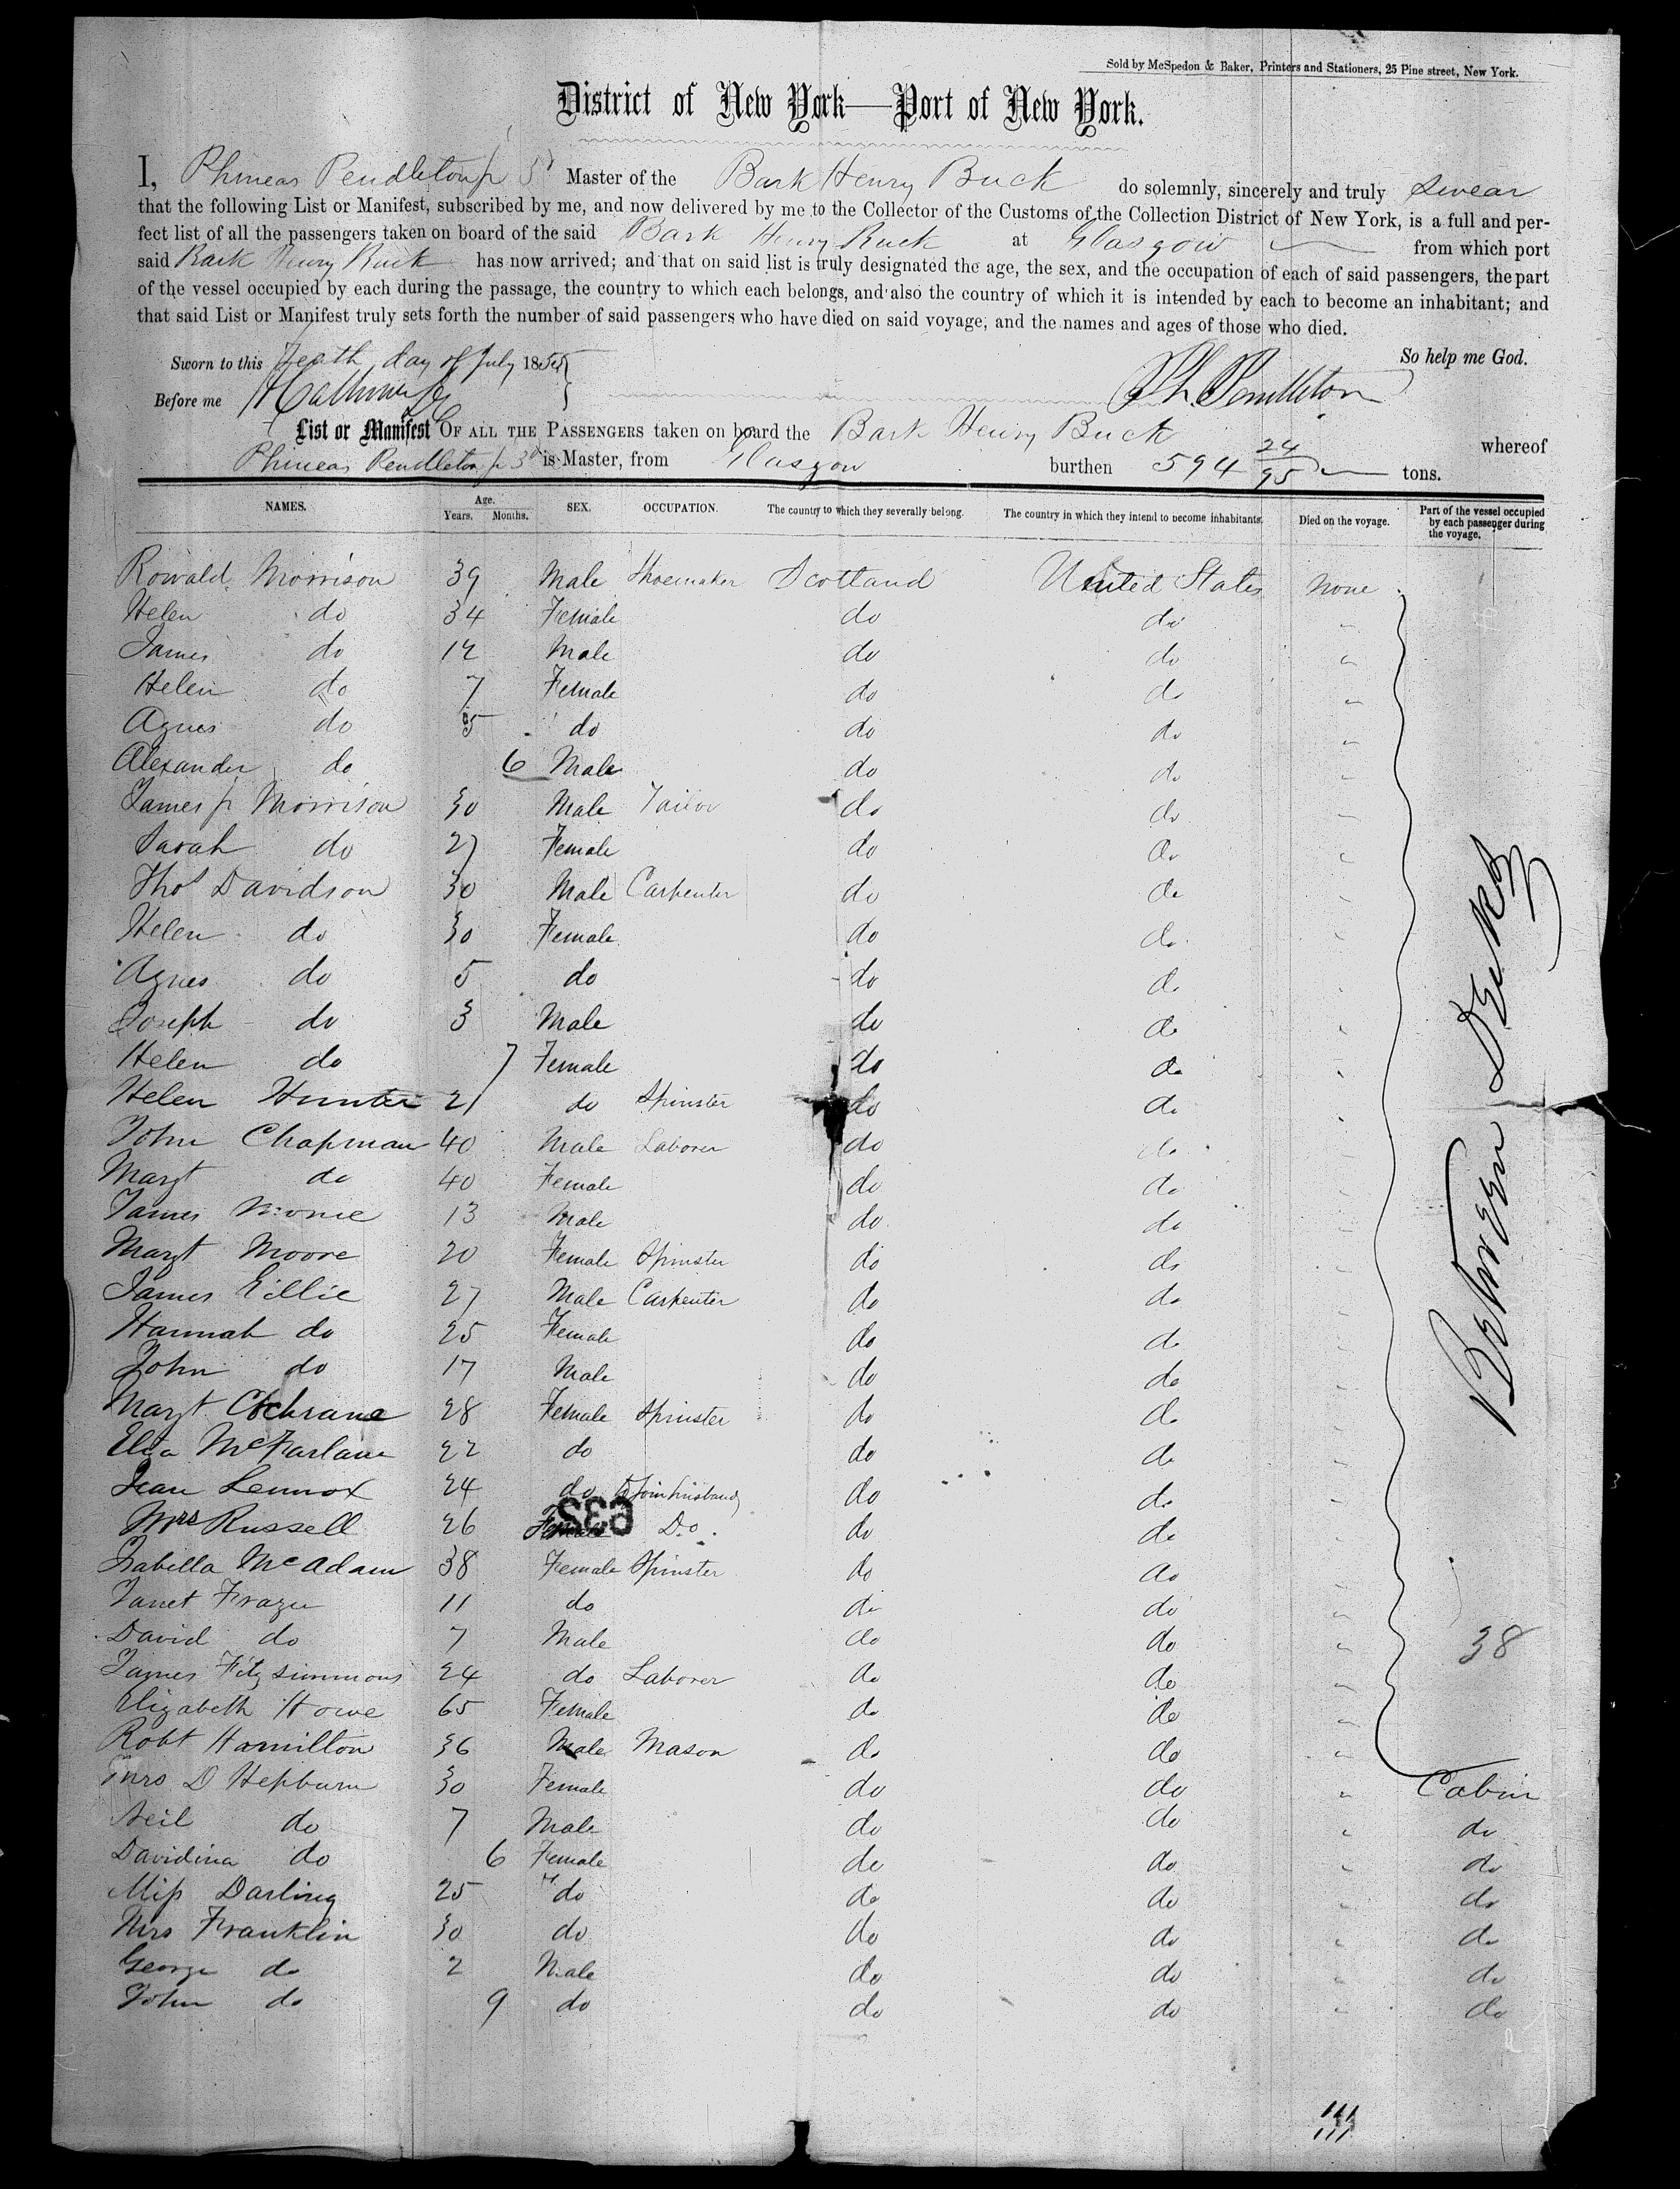 Sold by McSpedon & Baker, Printers and Stationers, 25 Pine street, New York.
District of New York—Port of New York.
I, Phineas Pendleton jr 3d Master of the Bark Henry Buck do solemnly, sincerely and truly swear
that the following List or Manifest, subscribed by me, and now delivered by me to the Collector of the Customs of the Collection District of New York, is a full and per-
fect list of all the passengers taken on board of the said Bark Henry Buck at Glasgow from which port
said Bark Henry Buck has now arrived; and that on said list is truly designated the age, the sex, and the occupation of each of said passengers, the part
of the vessel occupied by each during the passage, the country to which each belongs, and also the country of which it is intended by each to become an inhabitant; and
that said List or Manifest truly sets forth the number of said passengers who have died on said voyage, and the names and ages of those who died.
So help me God.
Sworn to this Tenth day of July 1855
Ph. Pendleton
Before me
List or Manifest OF ALL THE PASSENGERS taken on board the Bark Henry Buck whereof
Phineas Pendleton jr 3d is Master, from Glasgow burthen 594 24/95 tons.
NAMES. Age. Years. Months. SEX. OCCUPATION. The country to which they severally belong. The country in which they intend to become inhabitants. Died on the voyage. Part of the vessel occupied by each passenger during the voyage.
Rowald Morrison 39 Male Shoemaker Scotland United States None
Helen do 34 Female do do "
James do 12 Male do do "
Helen do 7 Female do do "
Agnes do 5 do do do "
Alexander do 6 Male do do "
James jr Morrison 30 Male Tailor do do "
Sarah do 27 Female do do "
Thos Davidson 30 Male Carpenter do do "
Helen do 30 Female do do "
Agnes do 5 do do do "
Joseph do 3 Male do do "
Helen do 7 Female do do "
Helen Hunter 21 do Spinster do do "
John Chapman 40 Male Laborer do do "
Margt do 40 Female do do "
James 13 Male do do "
Margt Moore 20 Female Spinster do do "
James Lillie 27 Male Carpenter do do "
Hannah do 25 Female do do "
John do 17 Male do do "
Margt Cochrane 28 Female Spinster do do "
Eliza McFarlane 22 do do do "
Jean Lennox 24 do To join husband do do "
Mrs Russell 26 Female Do. do do "
632
Isabella McAdam 38 Female Spinster do do "
Janet Frazer 11 do do do "
David do 7 Male do do "
James Fitzsimmons 24 do Laborer do do "
Elizabeth Howe 65 Female do do "
Robt Hamilton 36 Male Mason do do "
Between Decks
38
Mrs D Hepburn 30 Female do do " Cabin
Neil do 7 Male do do " do
Davidina do 6 Female do do " do
Miss Darling 25 do do do " do
Mrs Franklin 30 do do do " do
George do 2 Male do do " do
John do 9 do do do " do